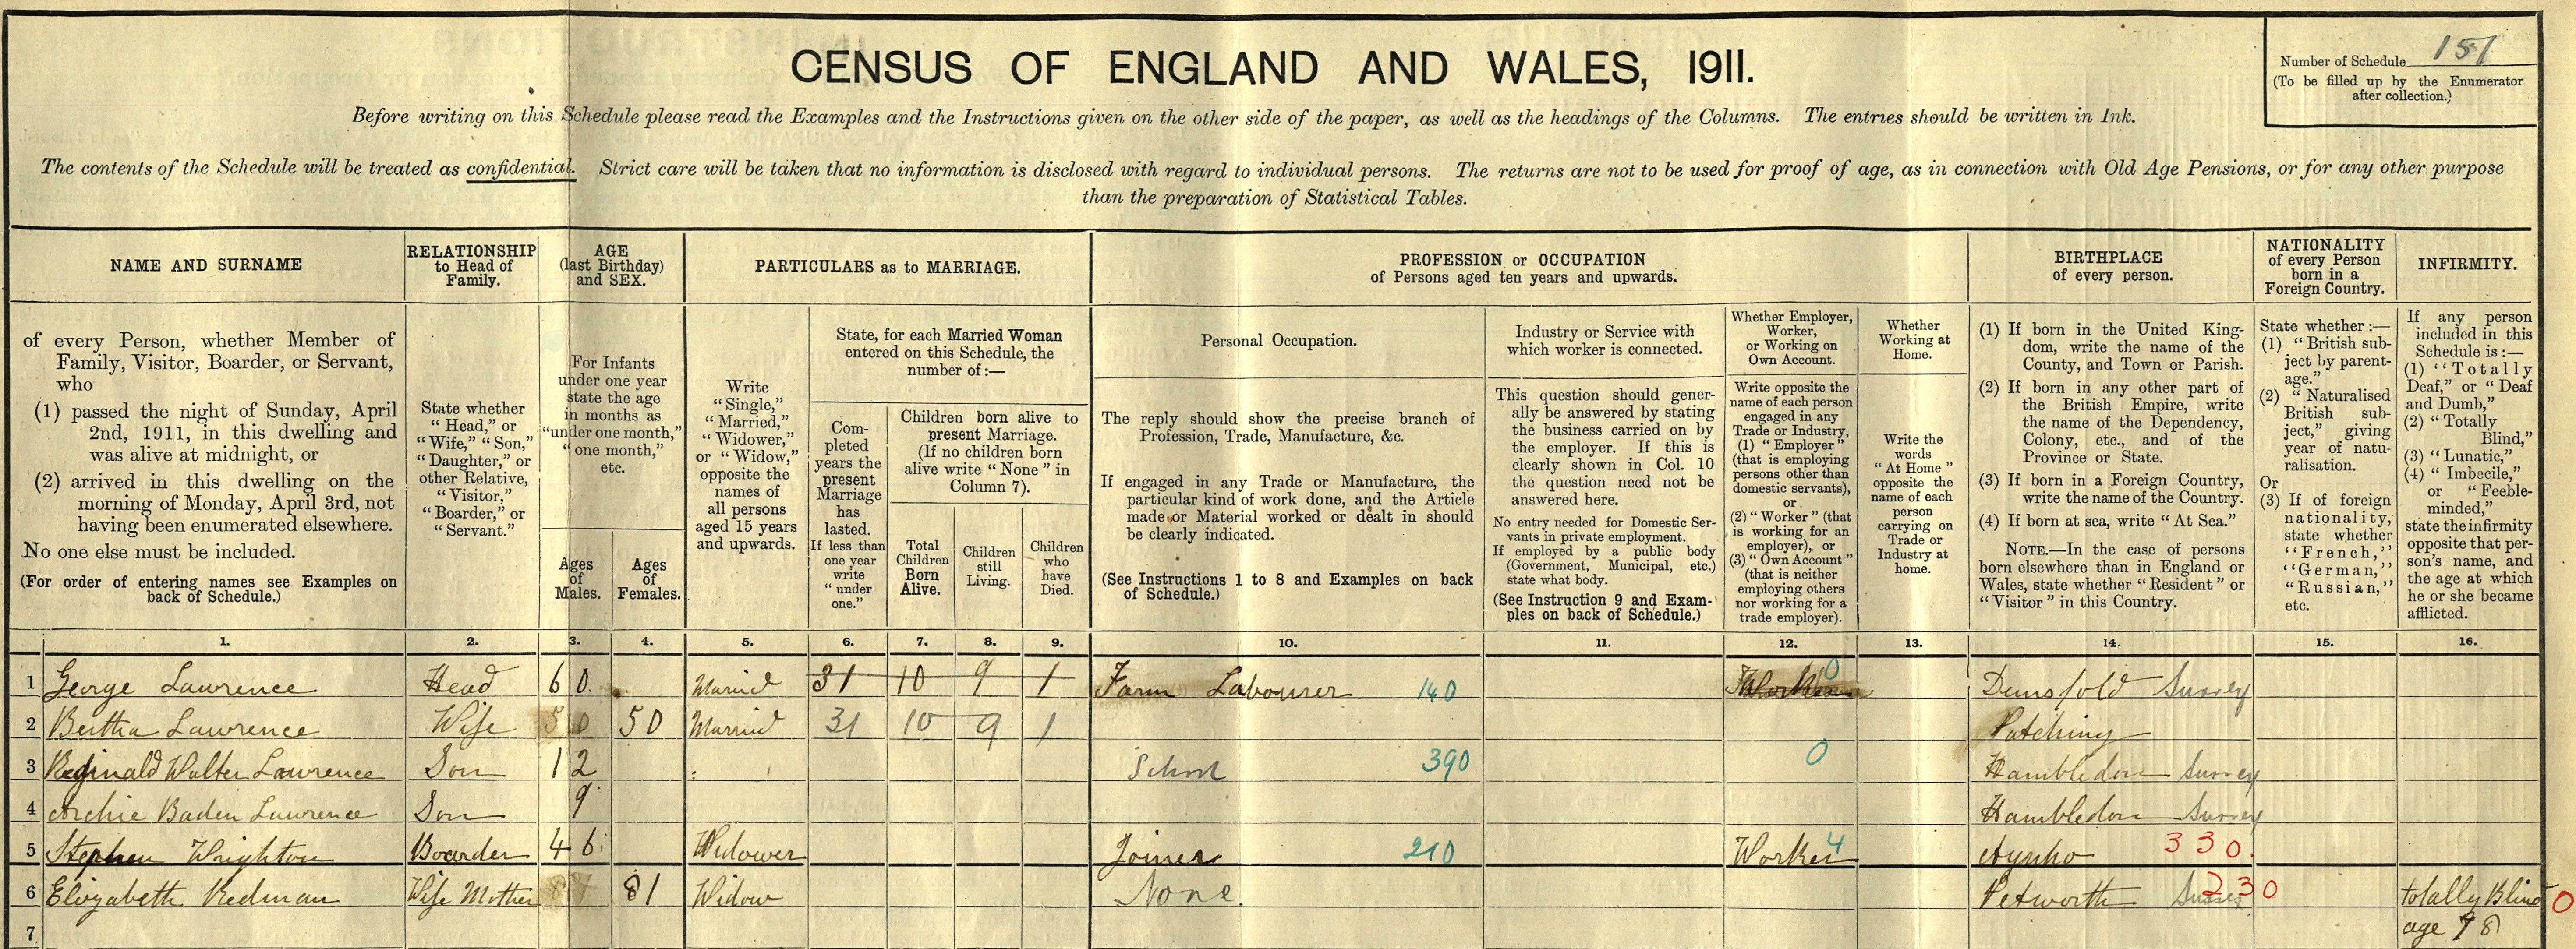 CENSUS OF ENGLAND AND WALES, 1911.
Number of Schedule 151
(To be filled up by the Enumerator
after collection.)
Before writing on this Schedule please read the Examples and the Instructions given on the other side of the paper, as well as the headings of the Columns. The entries should be written in Ink.
The contents of the Schedule will be treated as confidential. Strict care will be taken that no information is disclosed with regard to individual persons. The returns are not to be used for proof of age, as in connection with Old Age Pensions, or for any other purpose
than the preparation of Statistical Tables.
NAME AND SURNAME
RELATIONSHIP
to Head of
Family.
AGE
(last Birthday)
and SEX.
PARTICULARS as to MARRIAGE.
PROFESSION or OCCUPATION
of Persons aged ten years and upwards.
BIRTHPLACE
of every person.
NATIONALITY
of every Person
born in a
Foreign Country.
INFIRMITY.
of every Person, whether Member of
Family, Visitor, Boarder, or Servant,
who
(1) passed the night of Sunday, April
2nd, 1911, in this dwelling and
was alive at midnight, or
(2) arrived in this dwelling on the
morning of Monday, April 3rd, not
having been enumerated elsewhere.
No one else must be included.
(For order of entering names see Examples on
back of Schedule.)
State whether
"Head," or
"Wife," "Son,"
"Daughter," or
other Relative,
"Visitor,"
"Boarder," or
"Servant."
For Infants
under one year
state the age
in months as
"under one month,"
"one month,"
etc.
Ages
of
Males.
Ages
of
Females.
Write
"Single,"
"Married,"
"Widower,"
or "Widow,"
opposite the
names of
all persons
aged 15 years
and upwards.
State, for each Married Woman
entered on this Schedule, the
number of:—
Com-
pleted
years the
present
Marriage
has
lasted.
If less than
one year
write
"under
one."
Children born alive to
present Marriage.
(If no children born
alive write "None" in
Column 7).
Total
Children
Born
Alive.
Children
still
Living.
Children
who
have
Died.
Personal Occupation.
The reply should show the precise branch of
Profession, Trade, Manufacture, &c.
If engaged in any Trade or Manufacture, the
particular kind of work done, and the Article
made or Material worked or dealt in should
be clearly indicated.
(See Instructions 1 to 8 and Examples on back
of Schedule.)
Industry or Service with
which worker is connected.
This question should gener-
ally be answered by stating
the business carried on by
the employer. If this is
clearly shown in Col. 10
the question need not be
answered here.
No entry needed for Domestic Ser-
vants in private employment.
If employed by a public body
(Government, Municipal, etc.)
state what body.
(See Instruction 9 and Exam-
ples on back of Schedule.)
Whether Employer,
Worker,
or Working on
Own Account.
Write opposite the
name of each person
engaged in any
Trade or Industry,
(1) "Employer"
(that is employing
persons other than
domestic servants),
or
(2) "Worker" (that
is working for an
employer), or
(3) "Own Account"
(that is neither
employing others
nor working for a
trade employer).
Whether
Working at
Home.
Write the
words
"At Home"
opposite the
name of each
person
carrying on
Trade or
Industry at
home.
(1) If born in the United King-
dom, write the name of the
County, and Town or Parish.
(2) If born in any other part of
the British Empire, write
the name of the Dependency,
Colony, etc., and of the
Province or State.
(3) If born in a Foreign Country,
write the name of the Country.
(4) If born at sea, write "At Sea."
NOTE.—In the case of persons
born elsewhere than in England or
Wales, state whether "Resident" or
"Visitor" in this Country.
State whether:—
(1) "British sub-
ject by parent-
age."
(2) "Naturalised
British sub-
ject," giving
year of natu-
ralisation.
Or
(3) If of foreign
nationality,
state whether
"French,"
"German,"
"Russian,"
etc.
If any person
included in this
Schedule is:—
(1) "Totally
Deaf," or "Deaf
and Dumb,"
(2) "Totally
Blind,"
(3) "Lunatic,"
(4) "Imbecile,"
or "Feeble-
minded,"
state the infirmity
opposite that per-
son's name, and
the age at which
he or she became
afflicted.
1. 2. 3. 4. 5. 6. 7. 8. 9. 10. 11. 12. 13. 14. 15. 16.
1 George Lawrence Head 60 Married 31 10 9 1 Farm Labourer 140 Worker 0 Dunsfold Surrey
2 Bertha Lawrence Wife 50 50 Married 31 10 9 1 Patching
3 Reginald Walter Lawrence Son 12 School 390 0 Hambledon Surrey
4 Archie Baden Lawrence Son 9 Hambledon Surrey
5 Stephen Wrighton Boarder 46 Widower Joiner 210 Worker 4 Aynho 330.
6 Elizabeth Redman Wife Mother 81 Widow None. Petworth Sussex 230 totally Blind 0
7 age 78